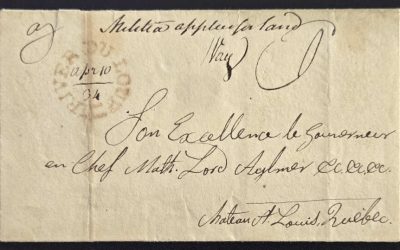 Militia applies for land
Way
RIVER DU LOUP
apr 10
34
Son Excellence le Gouverneur
en Chef Math. Lord Aylmer &c.&c.&c.
Chateau St Louis, Québec.